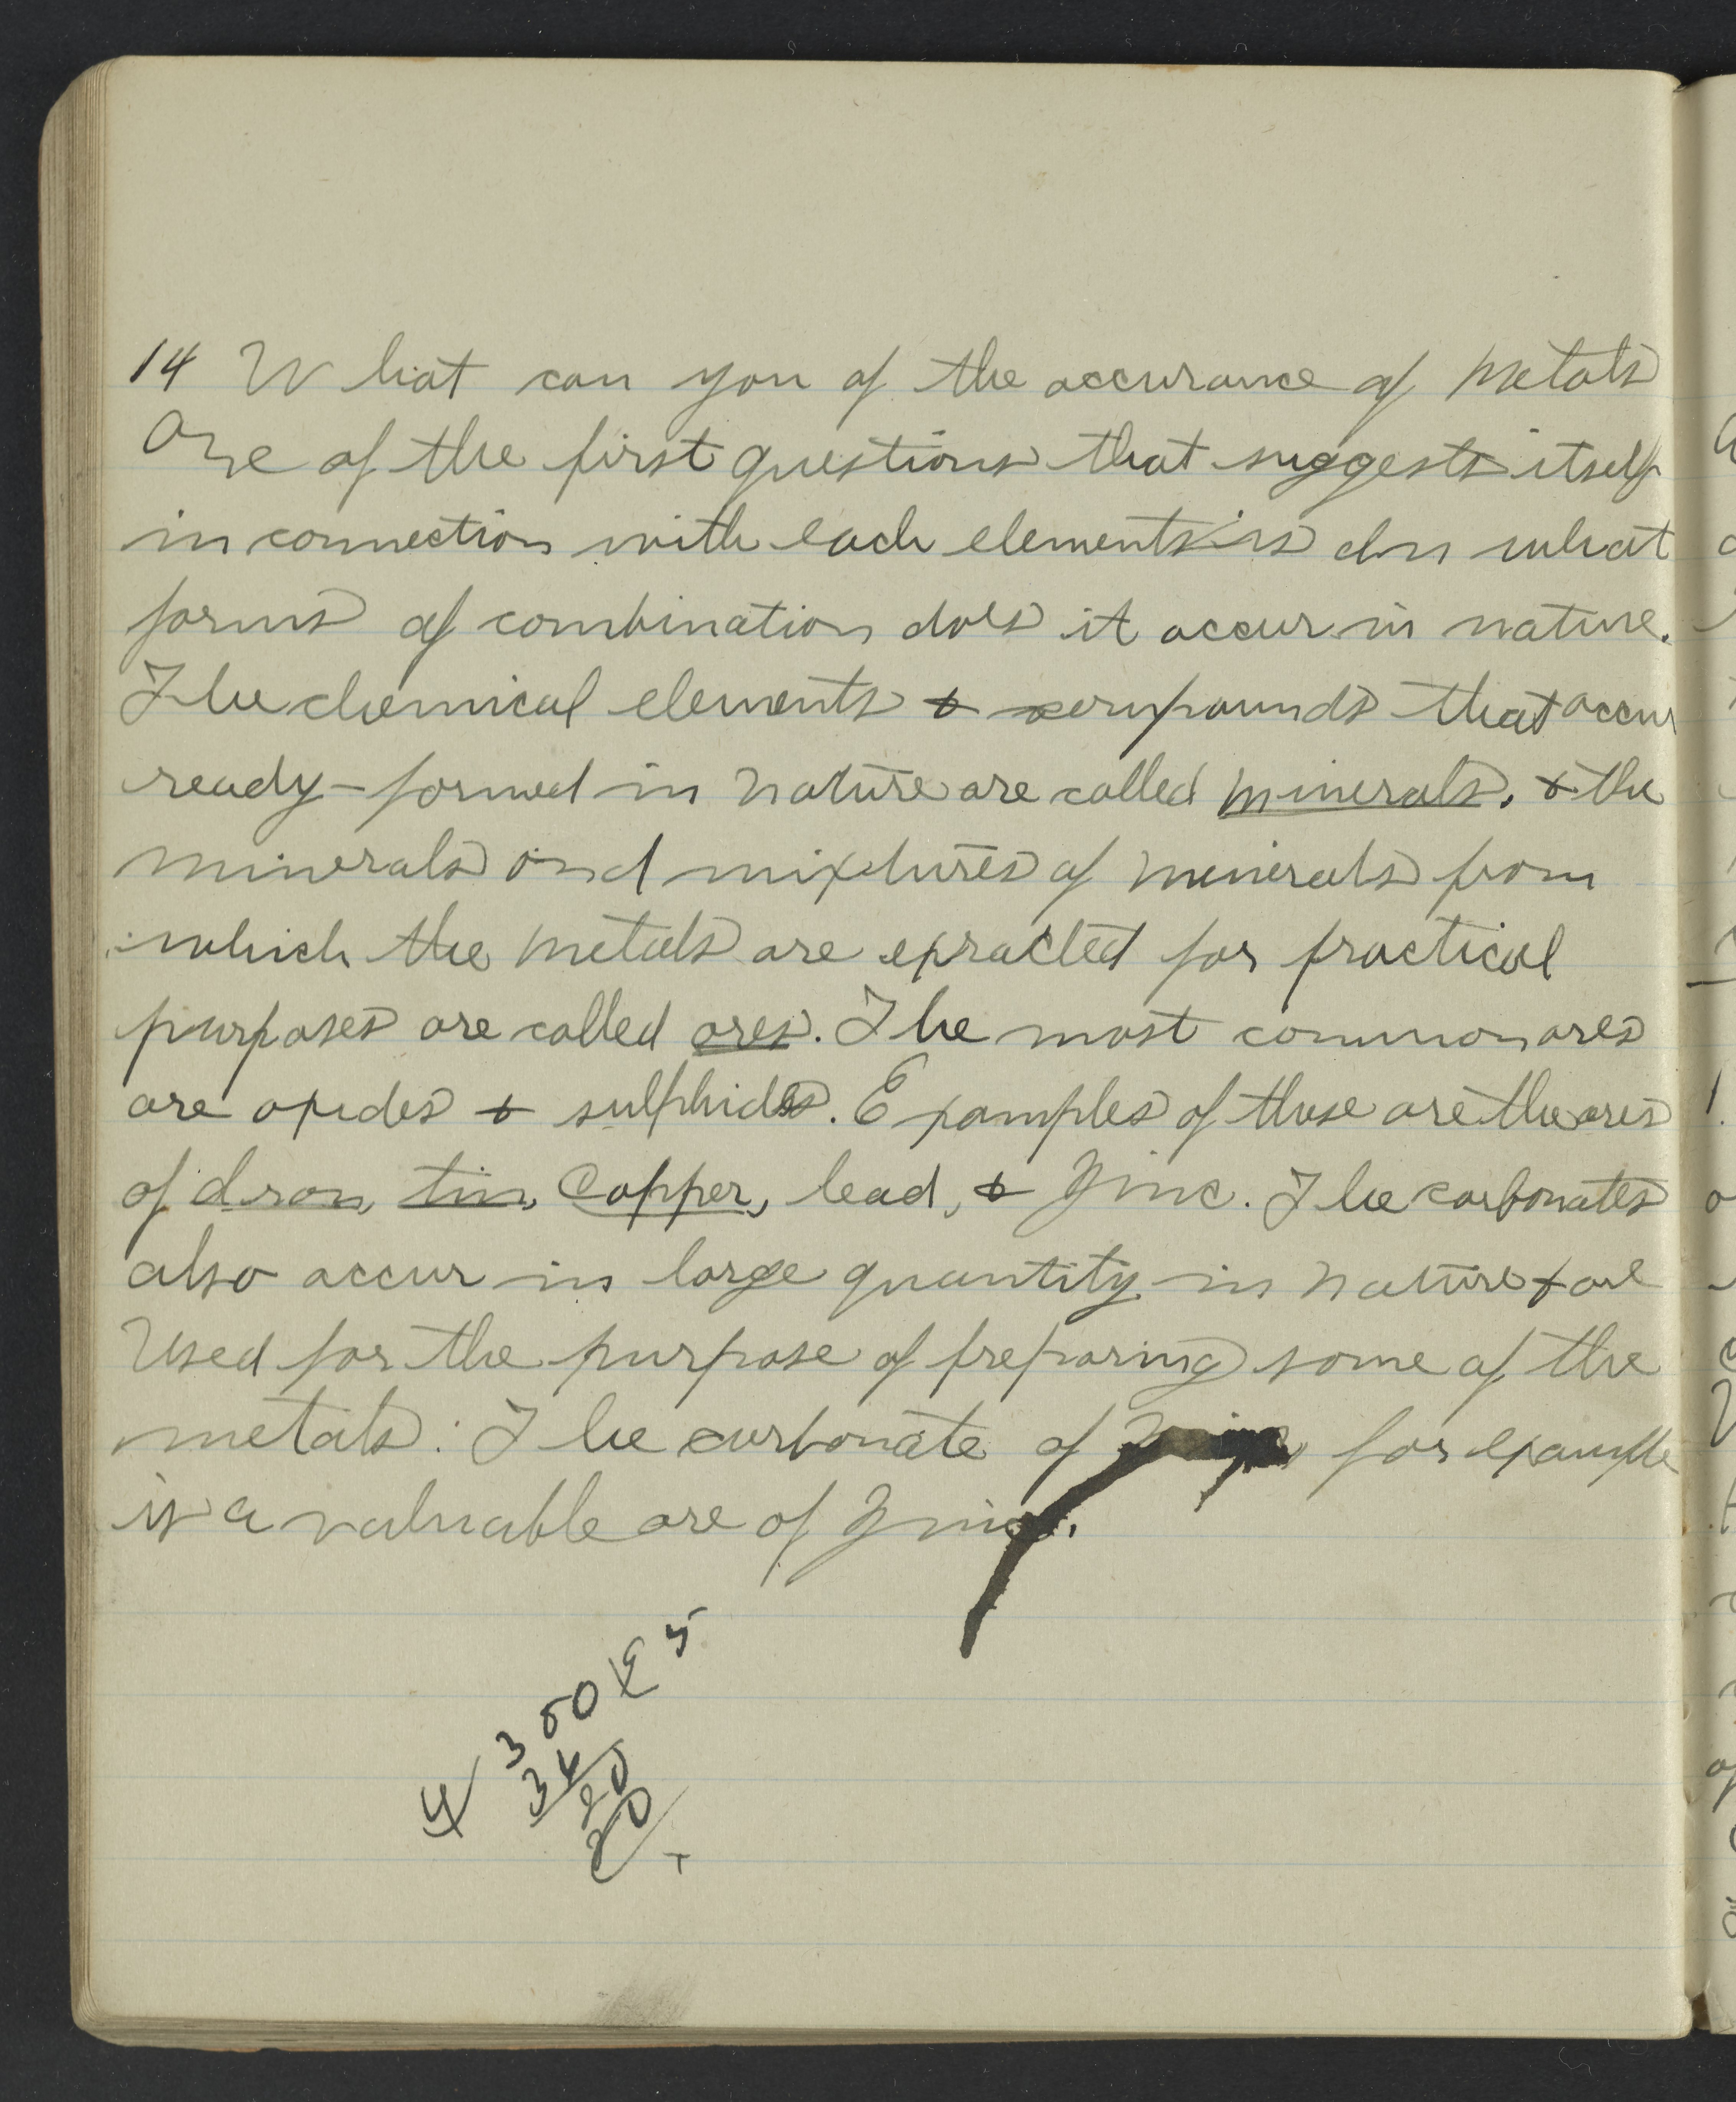 14 What can you of the occurance of Metals
One of the first questions that suggests itself
in connection with each elements is In what
forms of combination does it occur in nature.
The chemical elements & compounds that occur
ready-formed in nature are called minerals, & the
minerals and mixtures of minerals from
which the metals are exracted for practical
purposes are called ores. The most common ores
are oxides & sulphides. Examples of these are the ores
of Iron, tin, Copper, lead, & Zinc. The carbonates
also occur in large quantity in nature & are
Used for the purpose of preparing some of the
metals. The carbonate of Zinc, for example
is a valuable ore of Zinc.
4